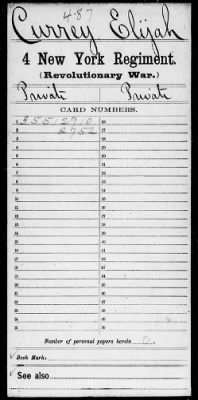 487
Currey Elijah
4 New York Regiment.
(Revolutionary War.)
Private Private
CARD NUMBERS.
1 35512910 26
2 2952 27
3 28
4 29
5 30
6 31
7 32
8 33
9 34
10 35
11 36
12 37
13 38
14 39
15 40
16 41
17 42
18 43
19 44
20 45
21 46
22 47
23 48
24 49
25 50
Number of personal papers herein 0.
Book Mark.
See also